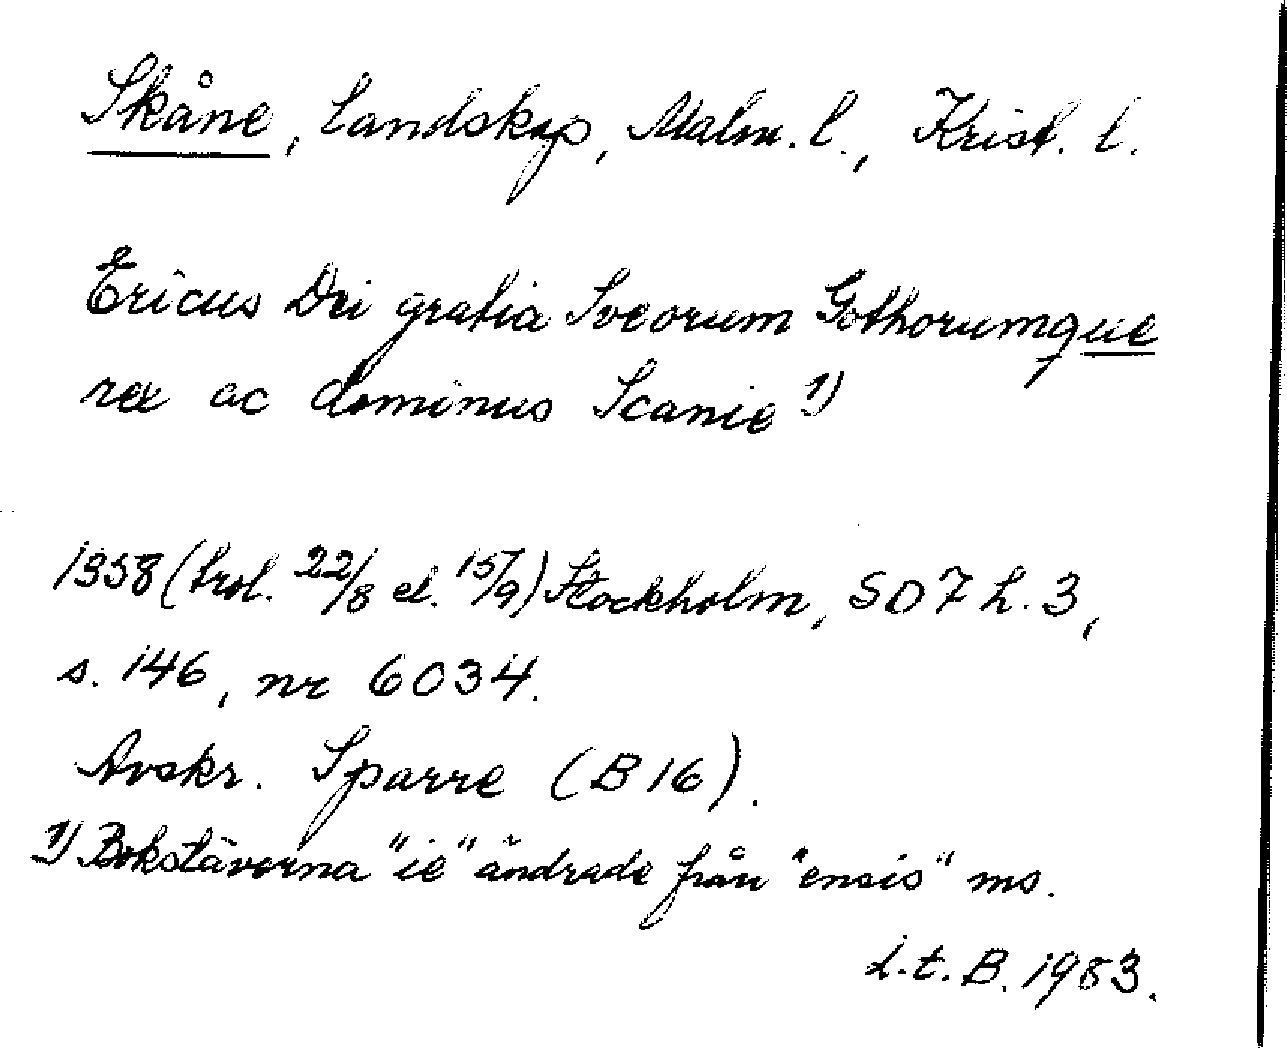 Skåne, landskap, Malm. l., Krist. l.
Ericus Dei gratia Sveorum Gothorumque
rex ac dominus Scanie 1)
1358 (trol. 22/8 el. 15/9) Stockholm, SD 7 h. 3,
s. 146, nr 6034.
Avskr. Sparre (B 16).
1) Bokstäverna "ie" ändrade från "ensis" ms.
L.t. B. 1983.